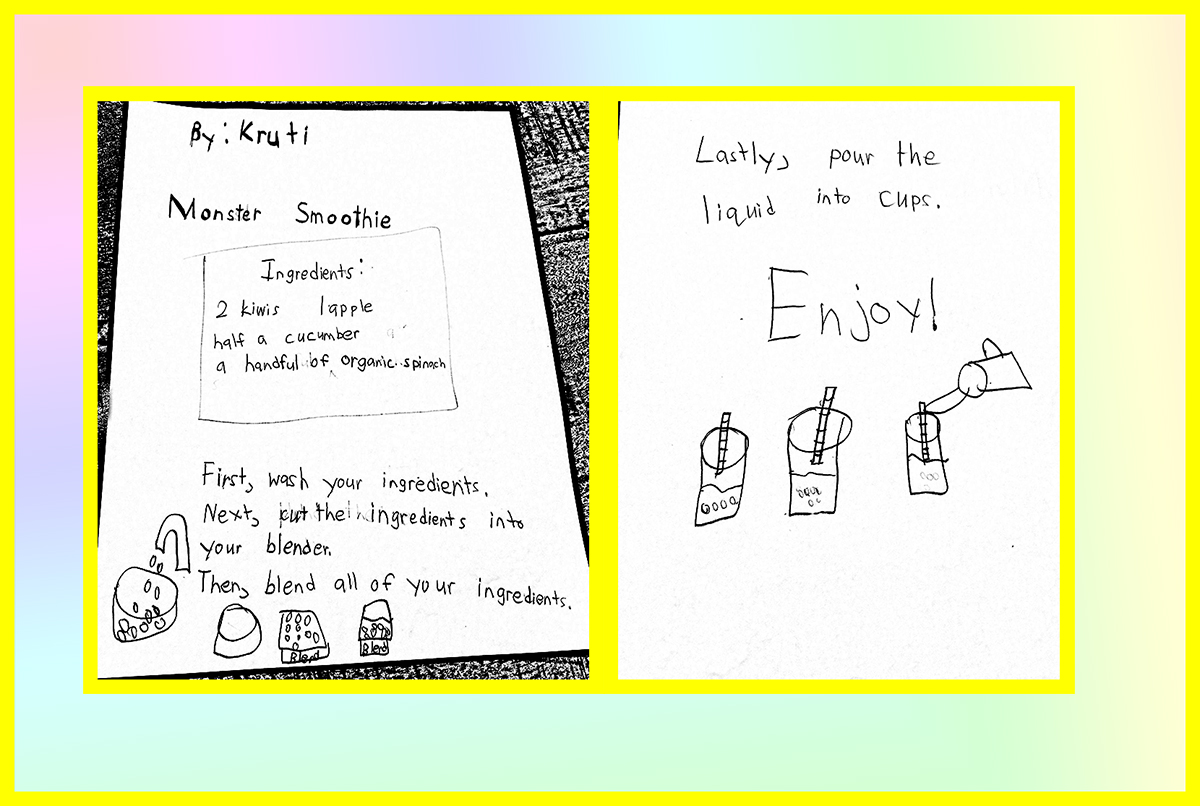 By: Kruti
Monster Smoothie
Ingredients:
2 kiwis 1 apple
half a cucumber
a handful of organic spinach
First, wash your ingredients.
Next, put the ingredients into
your blender.
Then, blend all of your ingredients.
Blend
Blend
Lastly, pour the
liquid into cups.
Enjoy!